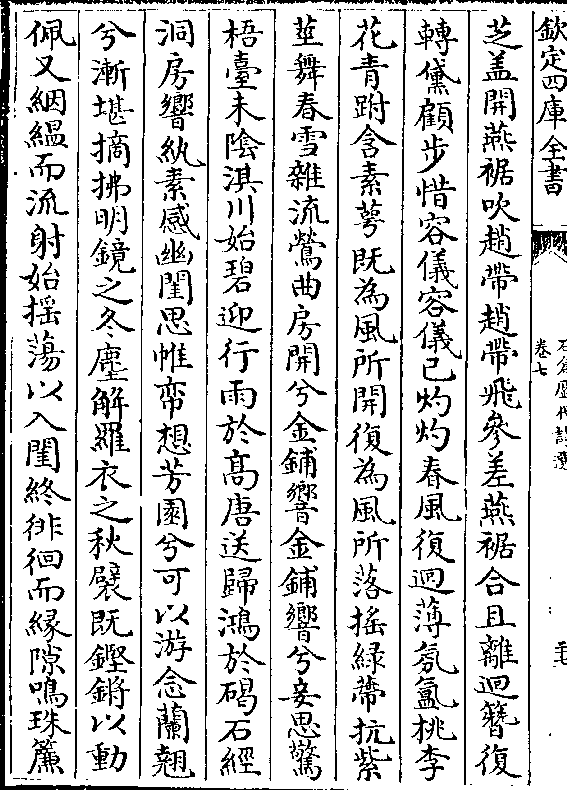 欽定四庫全書
石倉歷代詩選
卷七
芝盖開燕裾吹趙帶趙帶飛參差燕裾合且離迴簪復
轉黛顧步惜容儀容儀已灼灼春風復迴薄氛氲桃李
花青跗含素萼既為風所開復為風所落摇緑蔕抗紫
莖舞春雪雜流鶯曲房開兮金鋪響金鋪響兮妾思驚
梧臺未陰淇川始碧迎行雨於髙唐送歸鴻於碣石經
洞房響紈素感幽閨思帷帟想芳園兮可以游念蘭翹
兮漸堪摘拂明鏡之冬塵解羅衣之秋襞既鏗鏘以動
佩又絪緼而流射始摇蕩以入閨終徘徊而縁隙鳴珠簾